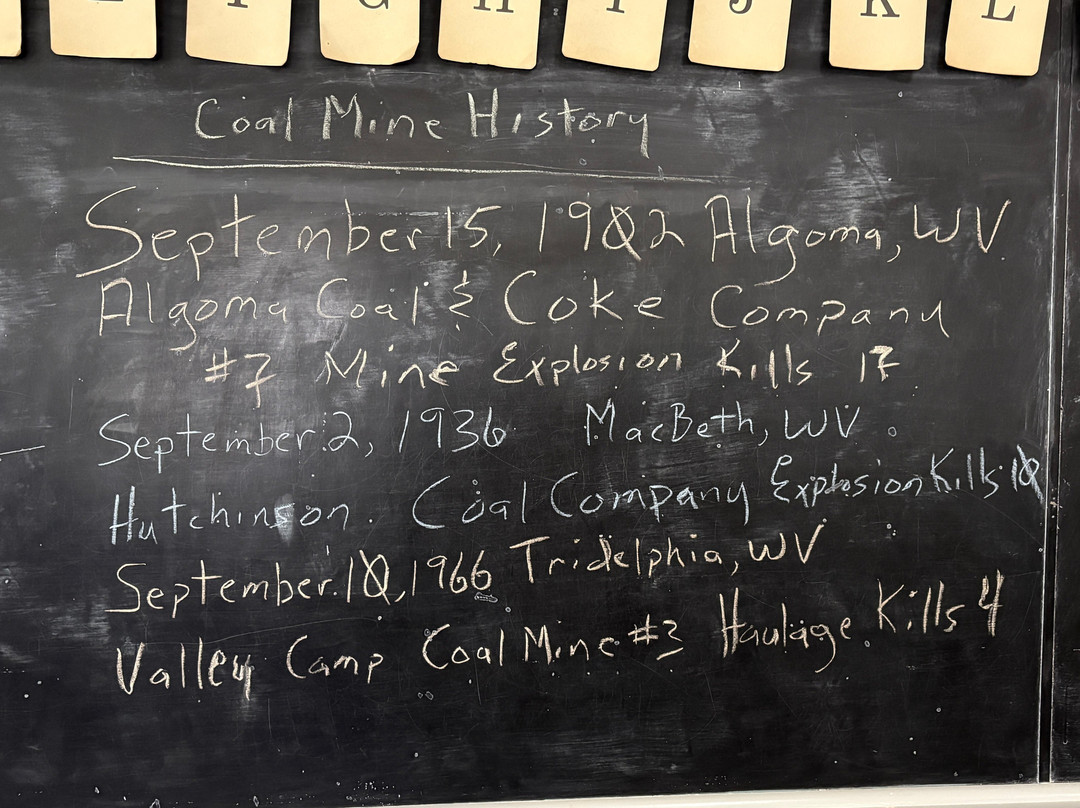 E F G H I J K L
Coal Mine History
September 15, 1902 Algoma, WV
Algoma Coal & Coke Company
#7 Mine Explosion Kills 17
September 2, 1936 MacBeth, WV
Hutchinson Coal Company Explosion Kills 10
September 10, 1966 Tridelphia, WV
Valley Camp Coal Mine #3 Haulage Kills 4